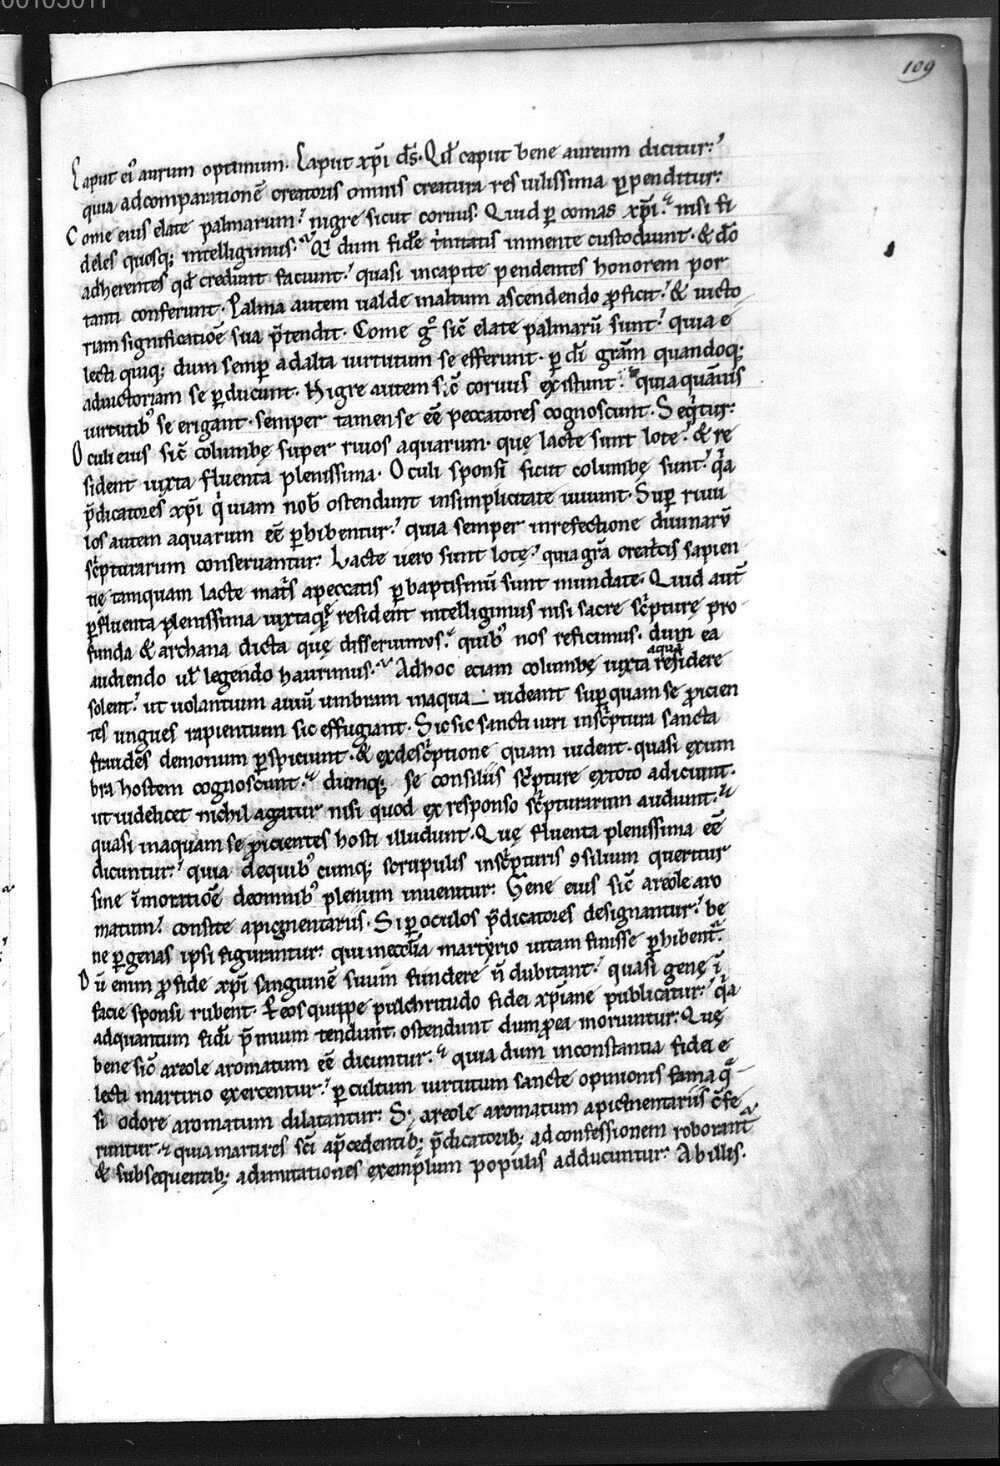 00105011
109
Caput ei᾽ aurum optimum. Caput xp̄i d̄s. Qd̄ caput bene aureum dicitur?
quia adcomparationē creatoris omnis creatura res vilissima ꝑpenditur.
Come eius elate palmarum? nigre sicut corvus. Quid ꝑ comas xp̄i? nisi fi
deles quosq; intelligimus. Qi dum fidē trinitatis inmente custodiunt. & dō
adherentes qd̄ credunt faciunt? quasi incapite pendentes honorem por
tanti conferunt. Palma autem valde inaltum ascendendo ꝓficit? & victo
riam significatiōe sua p̄tendit. Come gͦ sic̄ elate palmarū sunt? quia e
lecti quiq; dum semꝑ adalta virtutum se efferunt. ꝑ dī grām quandoq;
advictoriam se ꝑducunt. Nigre autem sic̄ corvus existunt? quia quāvis
virtutib᾽ se erigant. semper tamen se eē peccatores cognoscunt. Seqitur.
Oculi eius sic̄ columbę super rivos aquarum. quę lacte sunt lote? & re
sident iuxta fluenta plenissima. Oculi sponsi sicut columbę sunt? qa
p̄dicatores xp̄i qi viam nob̄ ostendunt insimplicitate vivunt. Suꝑ rivu
los autem aquarum eē ꝑhibentur? quia semper inrefectione divinarū
sc̄pturarum conservantur. Lacte vero sunt lotę? quia grā creat̄cis sapien
tię tanquam lacte mat̄s apeccatis ꝑ baptismū sunt mundate. Quid aut̄
ꝑ fluenta plenissima iuxtaquę resident intelligimus nisi sacre sc̄pturę pro
funda & archana dicta quę disserimus? quib᾽ nos reficimus. dum ea
audiendo ul̄ legendo haurimus. Adhoc eciam columbę iuxta aquā residere
solent? ut volantium aviū umbram inaqua videant suꝑ quam se ꝓicien
tes ungues rapientium sic effugiant. Sic sic sancti viri insc̄ptura sancta
fraudes demonum ꝑspiciunt. & exdesc̄ptione quam vident. quasi exum
bra hostem cognoscunt. dumq; se consiliis sc̄pture extoto adiciunt.
ut videlicet nichil agatur nisi quod ex responso sc̄pturarum audiunt.
quasi inaquam se ꝓicientes hosti illudunt. Quę fluenta plenissima eē
dicuntur? quia dequib᾽cumq; scrupulis insc̄pturis ꝯsilium queritur
sine īmoratiōe deomnib᾽ plenum invenitur. Gene eius sic̄ areole aro
matum? consite apigmentariis. Si ꝑ oculos p̄dicatores designantur? be
ne ꝑ genas ipsi figurantur. qui inęcc̄lia martyrio vitam finisse ꝑhibent̄.
Dū enim ꝓ fide xp̄i sanguinē suum fundere n̄ dubitant? quasi genę ī
facie sponsi rubent. & eos quippe pulchritudo fidei xp̄iane publicatur? qa
adquantum fidī p̄mium tendunt. ostendunt dum ꝓ ea moriuntur. Quę
bene sic̄ areole aromatum eē dicuntur. quia dum inconstantia fidei e
lecti martirio exercentur? ꝑ cultum virtutum sancte opinionis fama qa
si odore aromatum dilatantur. S; areole aromatum apigmentariis c̄fe
runtur. quia martires sc̄i ap̄cedentib; p̄dicatorib; adconfessionem roborant̄
& subsequentib; adimitationes exemplum populis adducuntur. Ab illis.